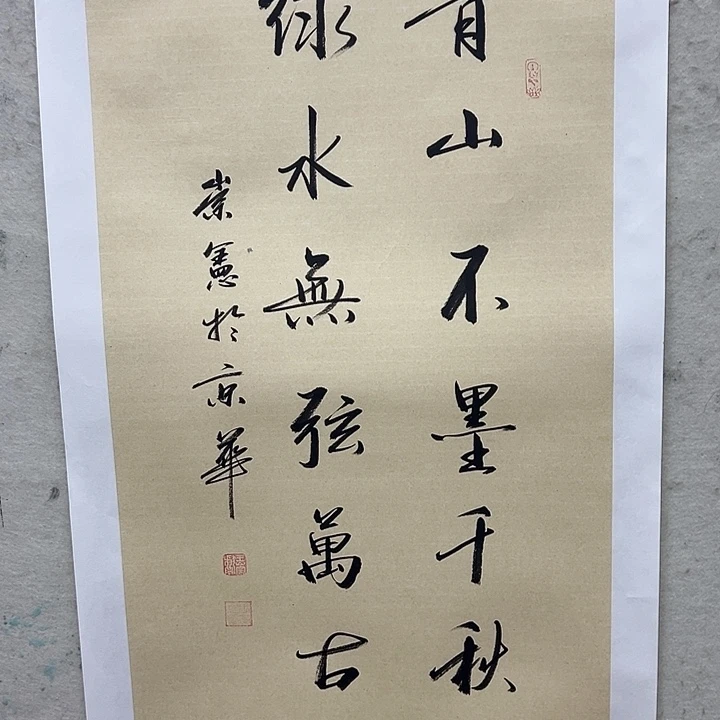 青山不墨千秋
綠水無弦萬古
崇憲於京華